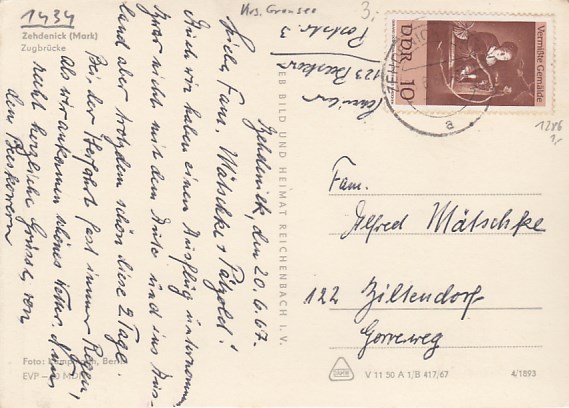 1434
Zehdenick (Mark)
Zugbrücke
Krs. Gransee
3,-
Zehdenick, den 20.6.67.
Liebe Fam. Mätschke + Pätzold!
Auch wir haben einen Ausflug unternommen
zwar nicht mit dem Auto und ins Aus-
land aber trotzdem schön diese 2 Tage.
Bei der Herfahrt fast immer Regen,
als wir ankamen schönes Wetter.
recht herzliche Grüsse, von
den Beskowern
Poststr. 3
123 Beeskow
VEB BILD UND HEIMAT REICHENBACH I. V.
Vermißte Gemälde
DDR 10
ZEHDENICK
a
1286
1,-
Fam.
Alfred Mätschke
122 Ziltendorf
Gorreweg
Foto: Berlin
EVP
V 11 50 A 1/B 417/67
4/1893